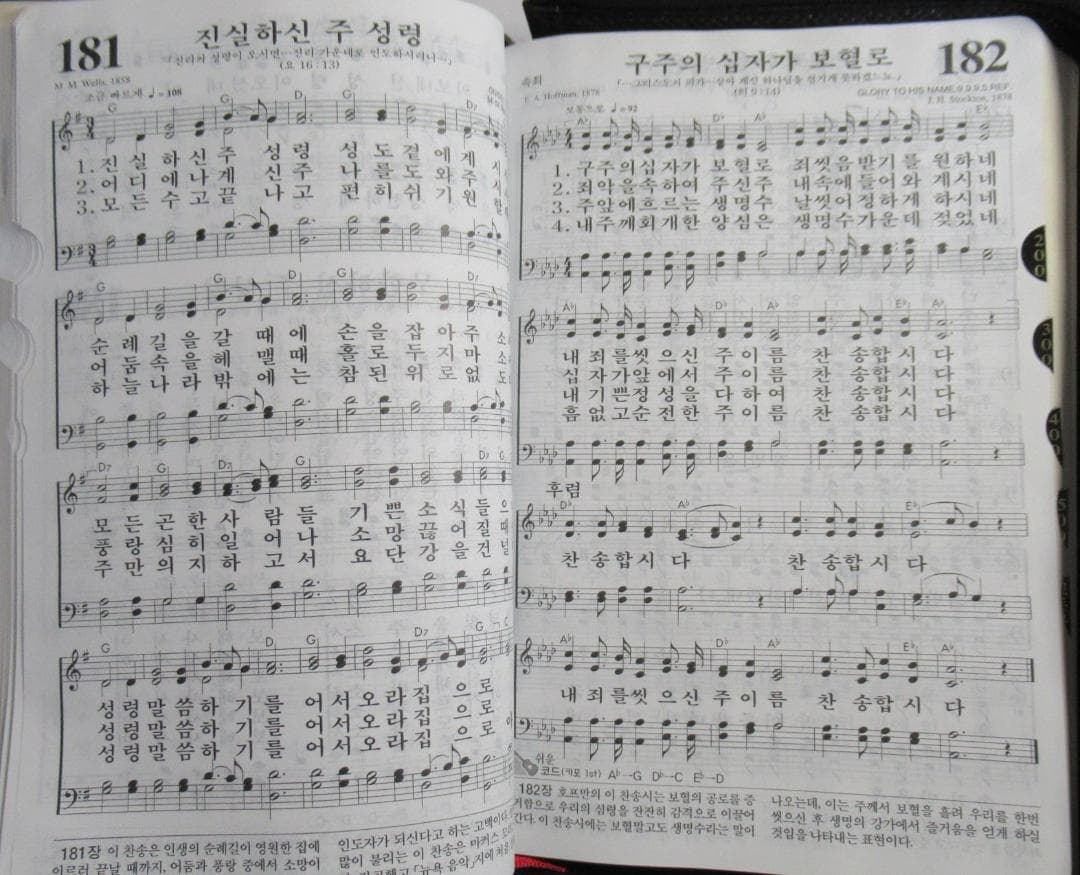 181
진실하신 주 성령
「진리의 성령이 오시면…진리 가운데로 인도하시리니…」
(요 16:13)
M. M. Wells, 1858
조금 빠르게 ♩= 108
G D7
1. 진 실 하 신 주 성 령 성 도 곁 에 계 시
2. 어 디 에 나 계 신 주 나 를 도 와 주 시
3. 모 든 수 고 끝 나 고 편 히 쉬 기 원 할
G G D G D7
순 례 길 을 갈 때 에 손 을 잡 아 주 소
어 둠 속 을 헤 맬 때 홀 로 두 지 마 소
하 늘 나 라 밖 에 는 참 된 위 로 없 도
D7 G D7 G D7 G
모 든 곤 한 사 람 들 기 쁜 소 식 들 으
풍 랑 심 히 일 어 나 소 망 끊 어 질 때
주 만 의 지 하 고 서 요 단 강 을 건 널
G D G D7 G C
성 령 말 씀 하 기 를 어 서 오 라 집 으 로
성 령 말 씀 하 기 를 어 서 오 라 집 으 로
성 령 말 씀 하 기 를 어 서 오 라 집 으 로
181장 이 찬송은 인생의 순례길이 영원한 집에
이르러 끝날 때까지, 어둠과 풍랑 중에서 소망이
인도자가 되신다고 하는 고백이다.
많이 불리는 이 찬송은 마커스
「뉴욕 음악」지에 처음
182
구주의 십자가 보혈로
속죄
「…그리스도의 피가…살아 계신 하나님을 섬기게 못하겠느뇨」
(히 9:14)
E. A. Hoffman, 1878
GLORY TO HIS NAME:9.9.9.5.REF.
J. H. Stockton, 1878
보통으로 ♩= 92
A♭ D♭ A♭ E♭
1. 구주의십자가 보혈로 죄씻음받기를 원하네
2. 죄악을속하여 주신주 내속에들어와 계시네
3. 주앞에흐르는 생명수 날씻어정하게 하시네
4. 내주께회개한 양심은 생명수가운데 젖었네
A♭ D♭ A♭ E♭ A♭
내 죄를씻 으신 주이름 찬 송합시 다
십 자가앞 에서 주이름 찬 송합시 다
내 기쁜정 성을 다하여 찬 송합시 다
흠 없고순 전한 주이름 찬 송합시 다
후렴
D♭ A♭ E♭
찬 송합시 다 찬 송합시 다
A♭ D♭ A♭ E♭ A♭
내 죄를씻 으신주이름 찬 송합시 다
쉬운
코드(카포 1st) A♭→G D♭→C E♭→D
182장 호프만의 이 찬송시는 보혈의 공로를 증
거함으로 우리의 심령을 잔잔히 감격으로 이끌어
간다. 이 찬송시에는 보혈말고도 생명수라는 말이
나오는데, 이는 주께서 보혈을 흘려 우리를 한번
씻으신 후 생명의 강가에서 즐거움을 얻게 하실
것임을 나타내는 표현이다.
200
300
400